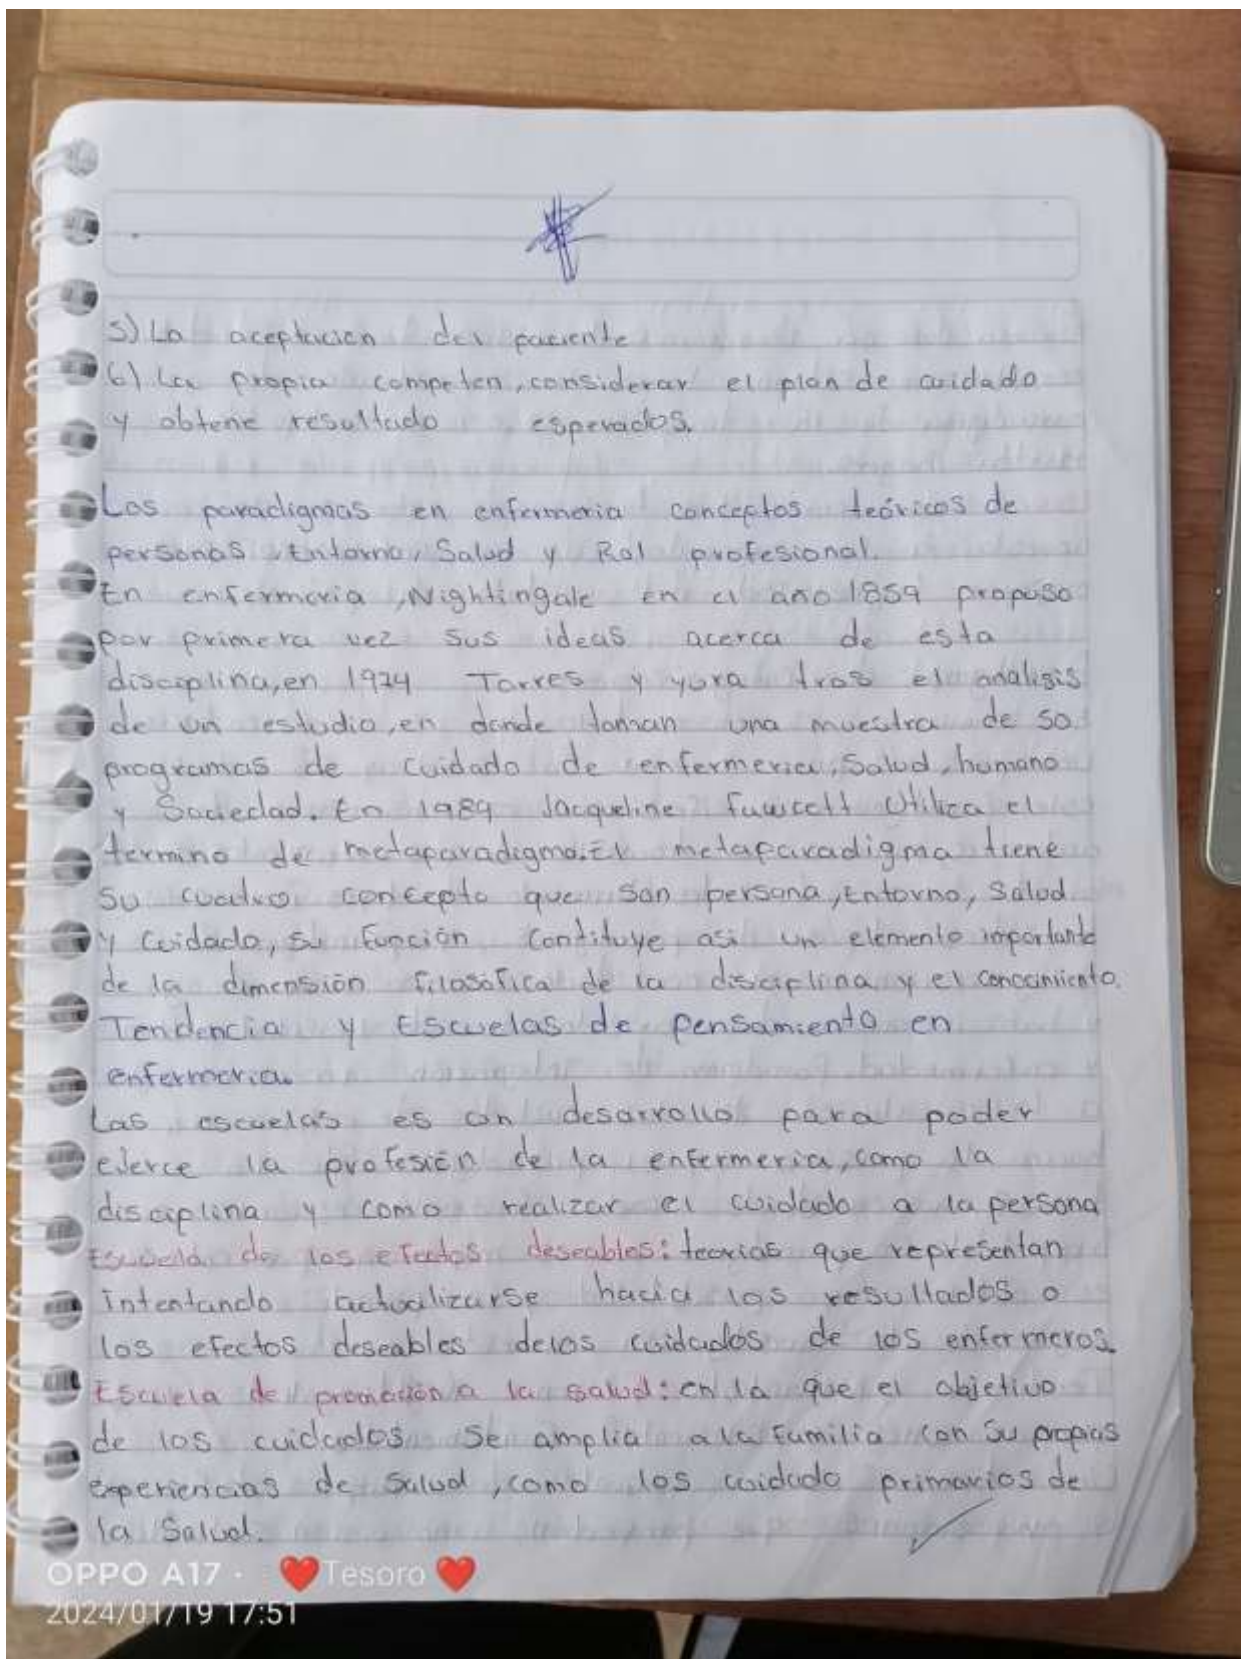 5) La aceptacion del paciente
6) La propia competen, considerar el plan de cuidado
y obtene resultado esperados.
Los paradigmas en enfermeria conceptos teóricos de
personas, Entorno, Salud y Rol profesional.
En enfermeria, Nightingale en el año 1859 propuso
por primera vez sus ideas acerca de esta
disciplina, en 1974 Torres y yura tras el analisis
de un estudio, en donde toman una muestra de 50
programas de cuidado de enfermeria, Salud, humano
y Sociedad. En 1984 Jacqueline Fawcett Utiliza el
termino de metaparadigma. El metaparadigma tiene
su cuatro concepto que son persona, Entorno, Salud
y Cuidado, su función contituye asi un elemento importante
de la dimensión filosófica de la disciplina y el conocimiento.
Tendencia y Escuelas de pensamiento en
enfermeria.
Las escuelas es un desarrollo para poder
ejerce la profesión de la enfermeria, como la
disciplina y como realizar el cuidado a la persona
Escuela de los efectos deseables: teorias que representan
intentando actualizarse hacia los resultados o
los efectos deseables delos cuidados de los enfermeros.
Escuela de promoción a la salud: en la que el objetivo
de los cuidados se amplia a la Familia con su propias
experiencias de salud, como los cuidado primarios de
la Salud.
OPPO A17 · ❤Tesoro❤
2024/01/19 17:51